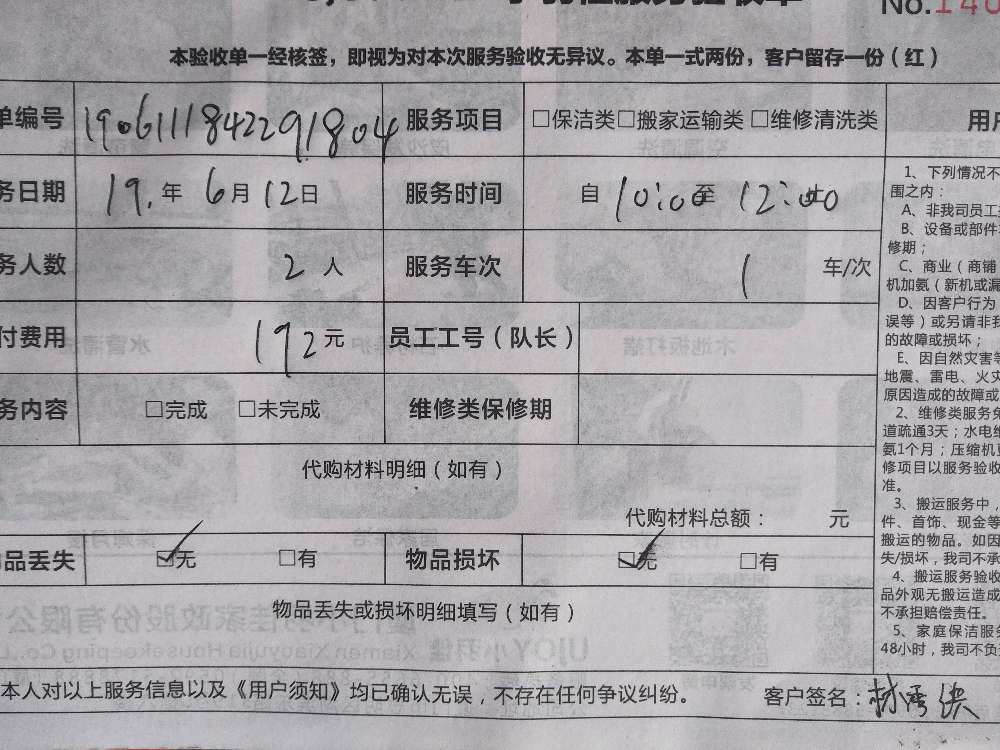 No.140
本验收单一经核签，即视为对本次服务验收无异议。本单一式两份，客户留存一份（红）
单编号 19061118422291804 服务项目 □保洁类□搬家运输类 □维修清洗类
务日期 19.年 6月 12日 服务时间 自 10:00至 12:00止
务人数 2 人 服务车次 1 车/次
付费用 192元 员工工号（队长）
务内容 □完成 □未完成 维修类保修期
代购材料明细（如有）
代购材料总额： 元
品丢失 ☑无 □有 物品损坏 ☑无 □有
物品丢失或损坏明细填写（如有）
本人对以上服务信息以及《用户须知》均已确认无误，不存在任何争议纠纷。 客户签名：林
用户
1、下列情况不
围之内：
A、非我司员工
B、设备或部件
修期；
C、商业（商铺
机加氨（新机或漏
D、因客户行为
误等）或另请非我
的故障或损坏；
E、因自然灾害等
地震、雷电、火灾
原因造成的故障或
2、维修类服务免
道疏通3天；水电维
氨1个月；压缩机更
修项目以服务验收
准。
3、搬运服务中，
件、首饰、现金等
搬运的物品。如因
失/损坏，我司不承
4、搬运服务验收
品外观无搬运造成
不承担赔偿责任。
5、家庭保洁服务
48小时，我司不负